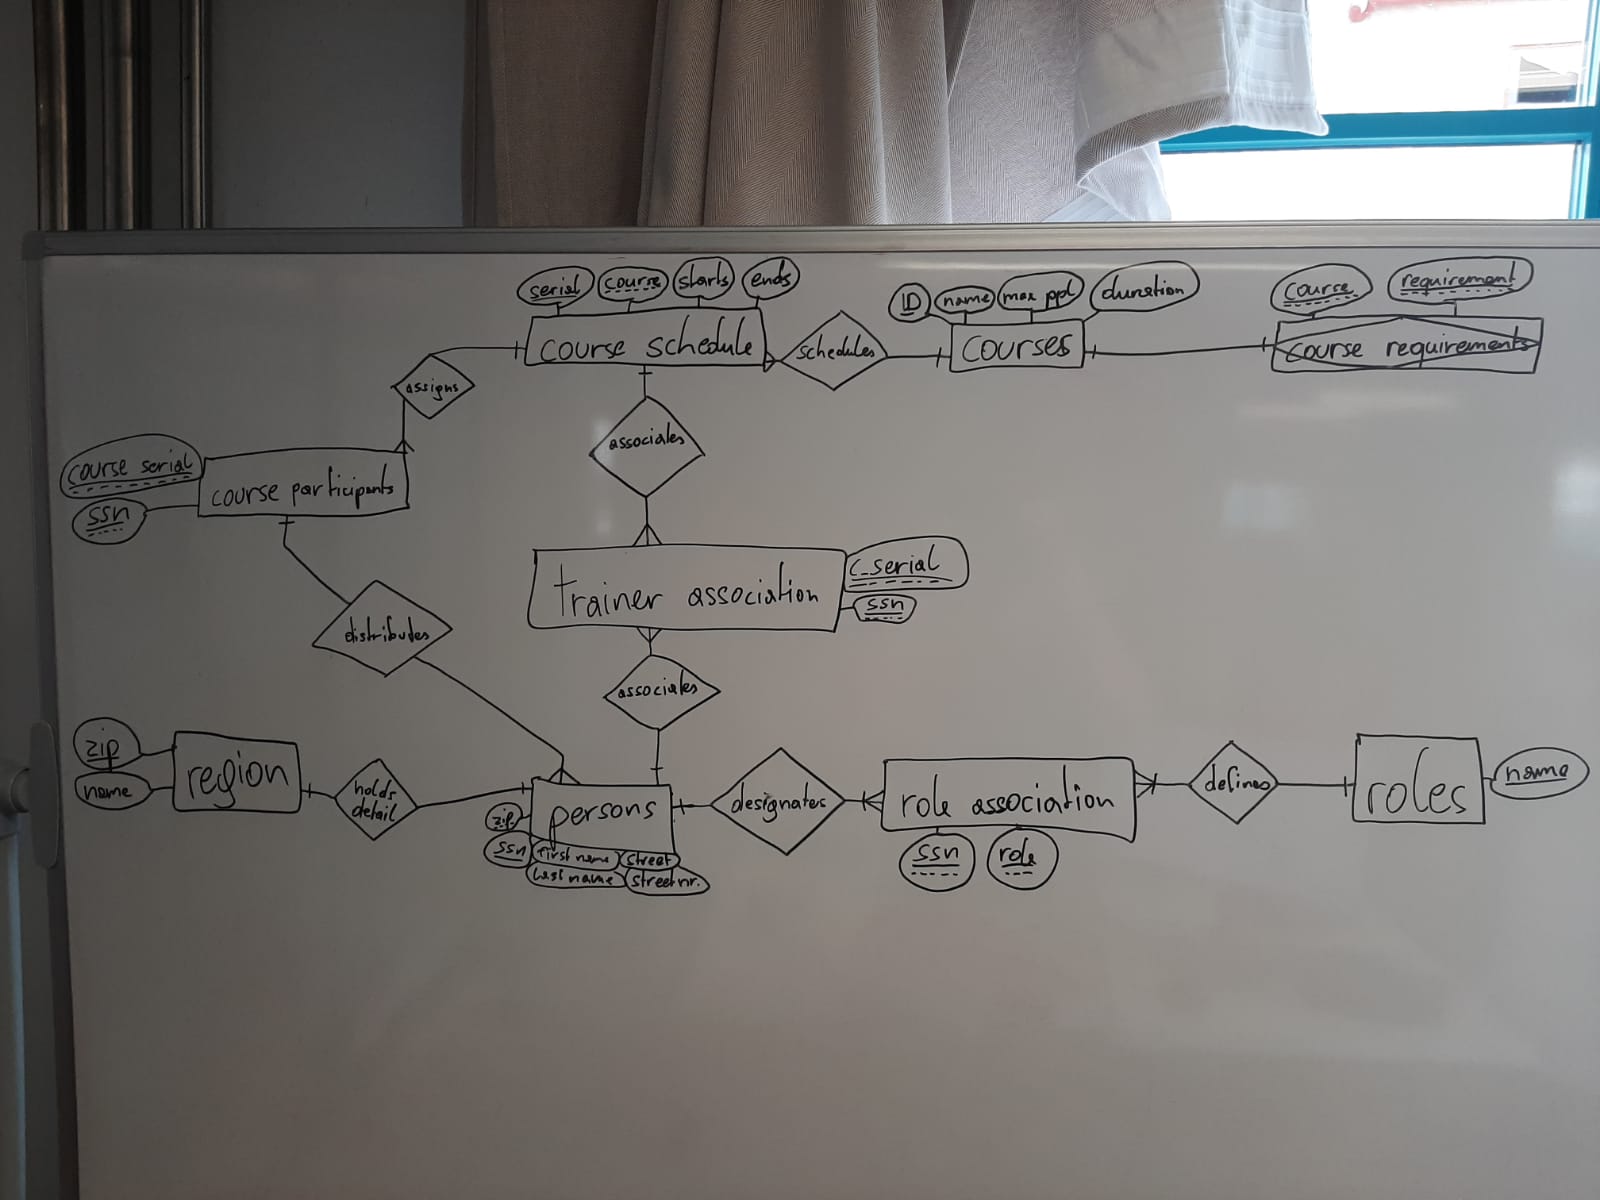 serial
course
starts
ends
course schedule
schedules
ID
name
max ppl
duration
courses
course
requirement
course requirements
assigns
associates
course serial
ssn
course participants
trainer association
c_serial
ssn
distributes
associates
zip
name
region
holds
detail
persons
zip
ssn
first name
street
last name
street nr.
designates
role association
ssn
role
defines
roles
name